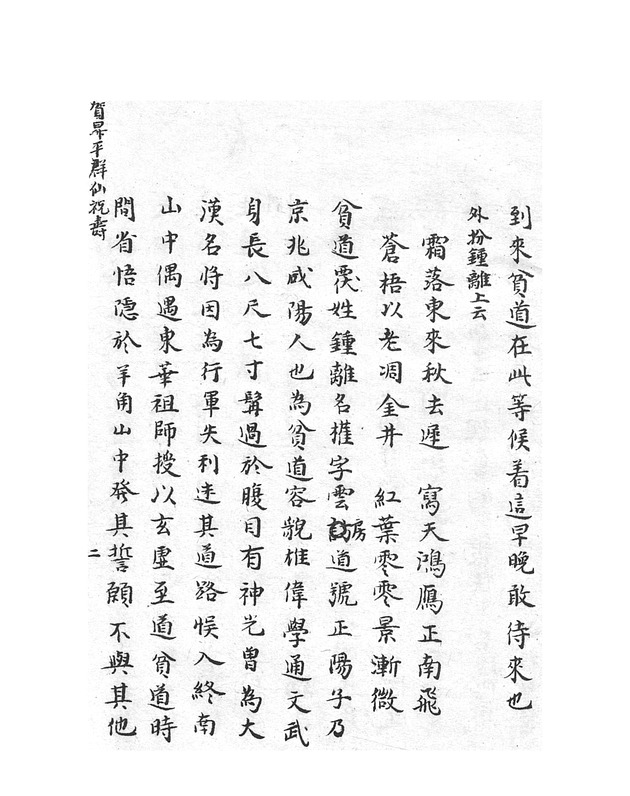 到來貧道在此等候着這早晚敢待來也
外扮鍾離上云
霜落東來秋去遲　寫天鴻鴈正南飛
蒼梧以老凋金井　紅葉零零景漸微
貧道覆姓鍾離名搉字雲房道號正陽子乃
京兆咸陽人也為貧道容貌雄偉學通文武
身長八尺七寸髯過於腹目有神光曾為大
漢名將因為行軍失利迷其道路悞入終南
山中偶遇東華祖師授以玄虛至道貧道時
間省悟隱於羊角山中發其誓願不與其他
賀昇平群仙祝壽
二